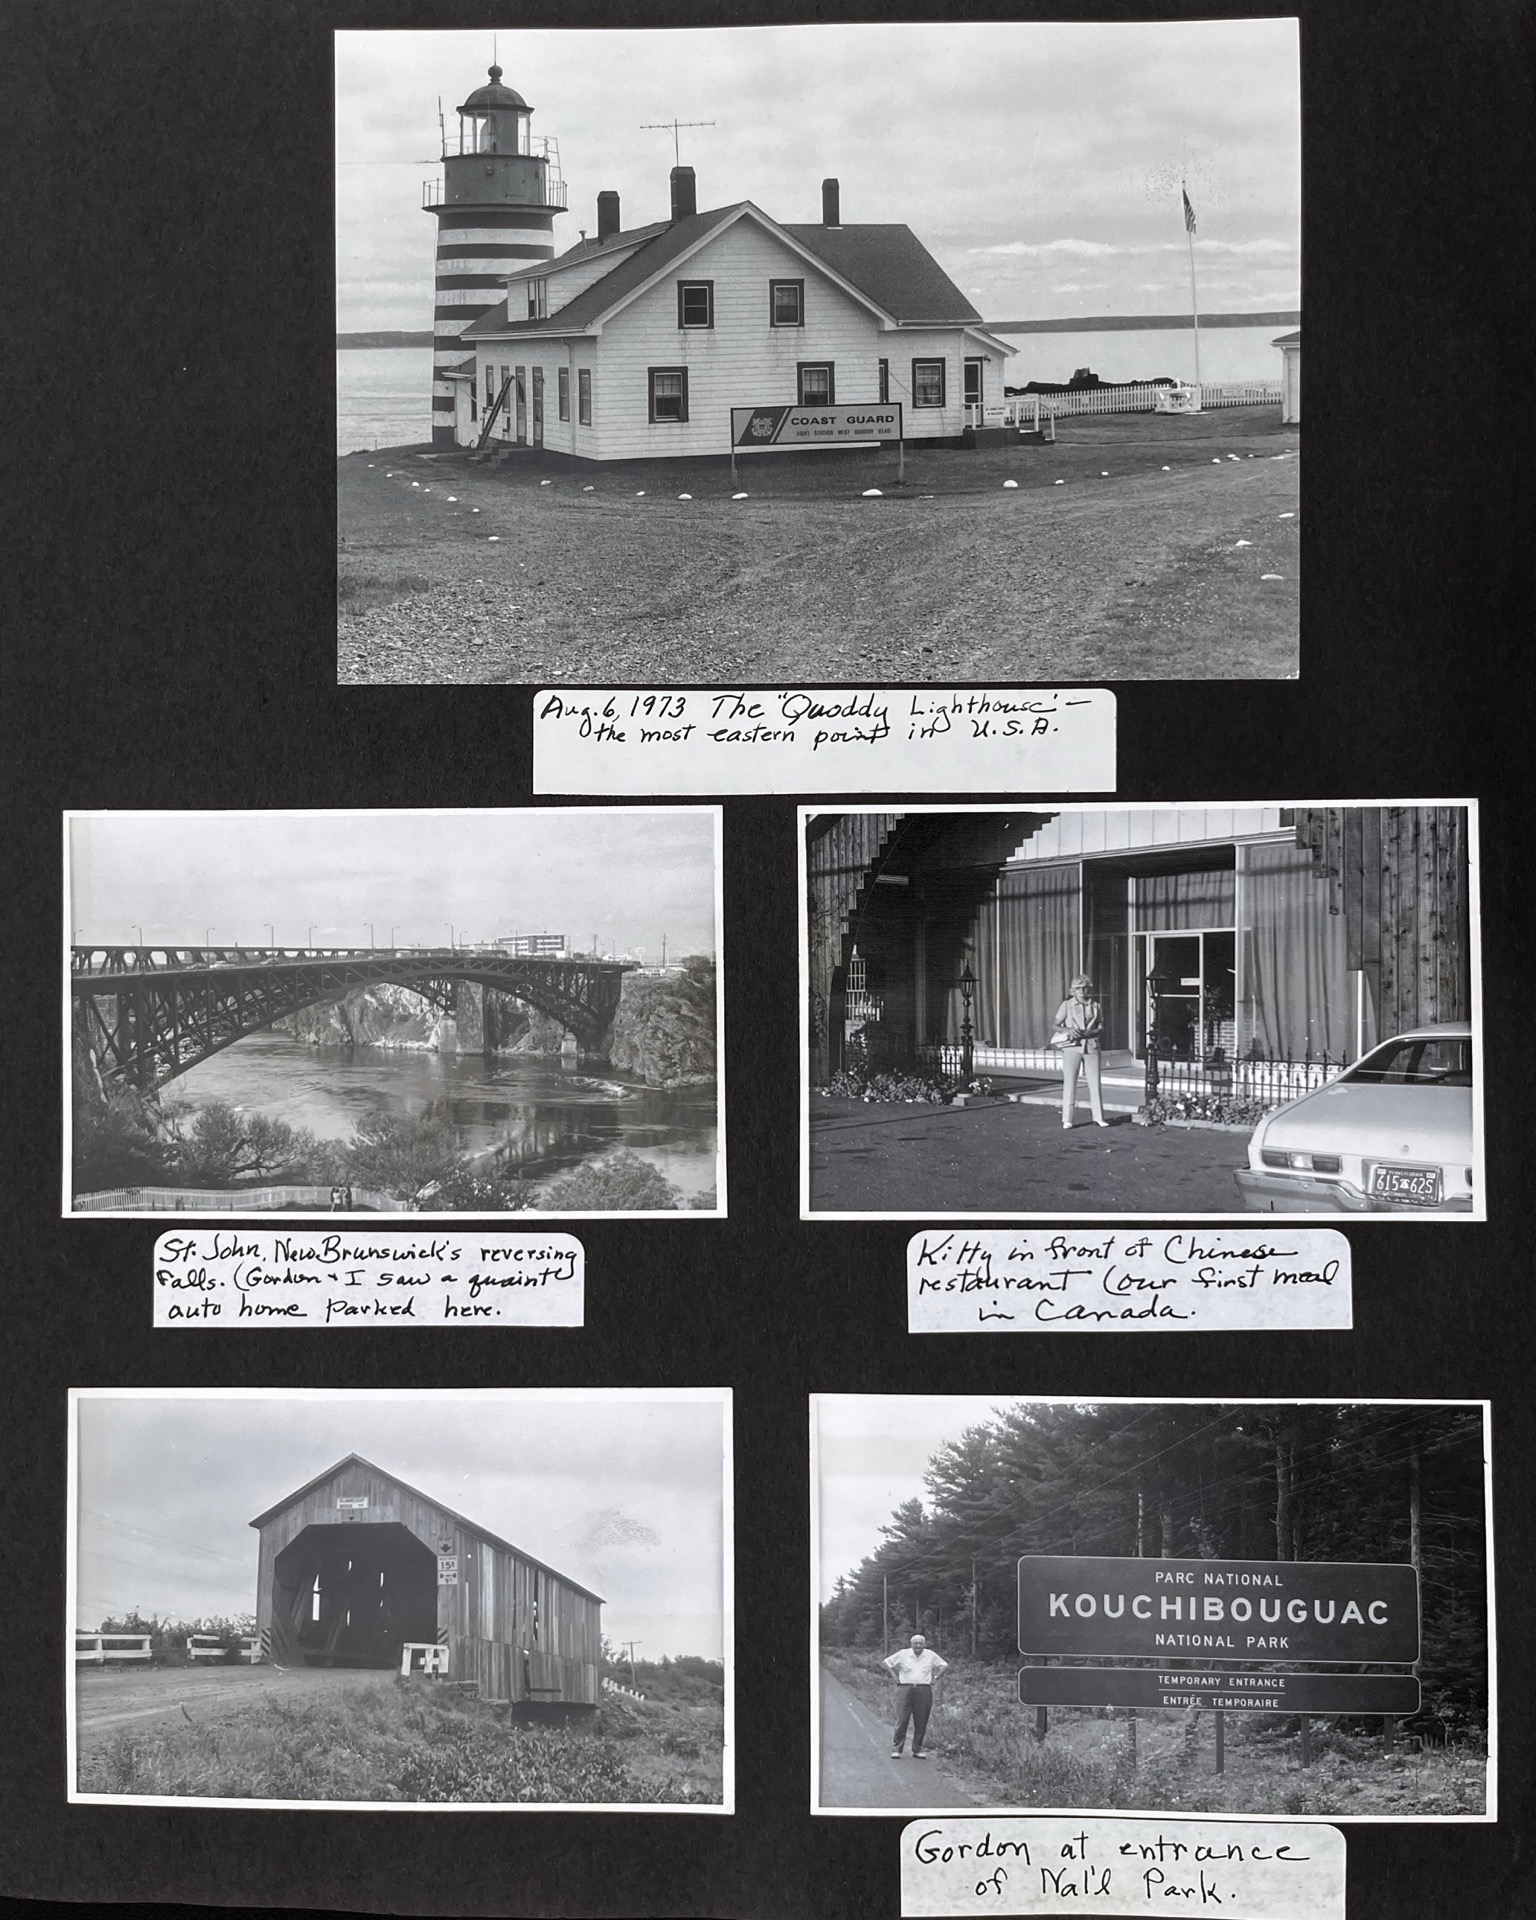 COAST GUARD
LIGHT STATION WEST QUODDY HEAD
Aug. 6, 1973 The "Quoddy Lighthouse" –
the most eastern point in U.S.A.
St. John, New Brunswick's reversing
falls. (Gordon + I saw a quaint
auto home parked here.
PENNSYLVANIA
615 62S
Kitty in front of Chinese
restaurant (our first meal
in Canada.
15
PARC NATIONAL
KOUCHIBOUGUAC
NATIONAL PARK
TEMPORARY ENTRANCE
ENTRÉE TEMPORAIRE
Gordon at entrance
of Nat'l Park.